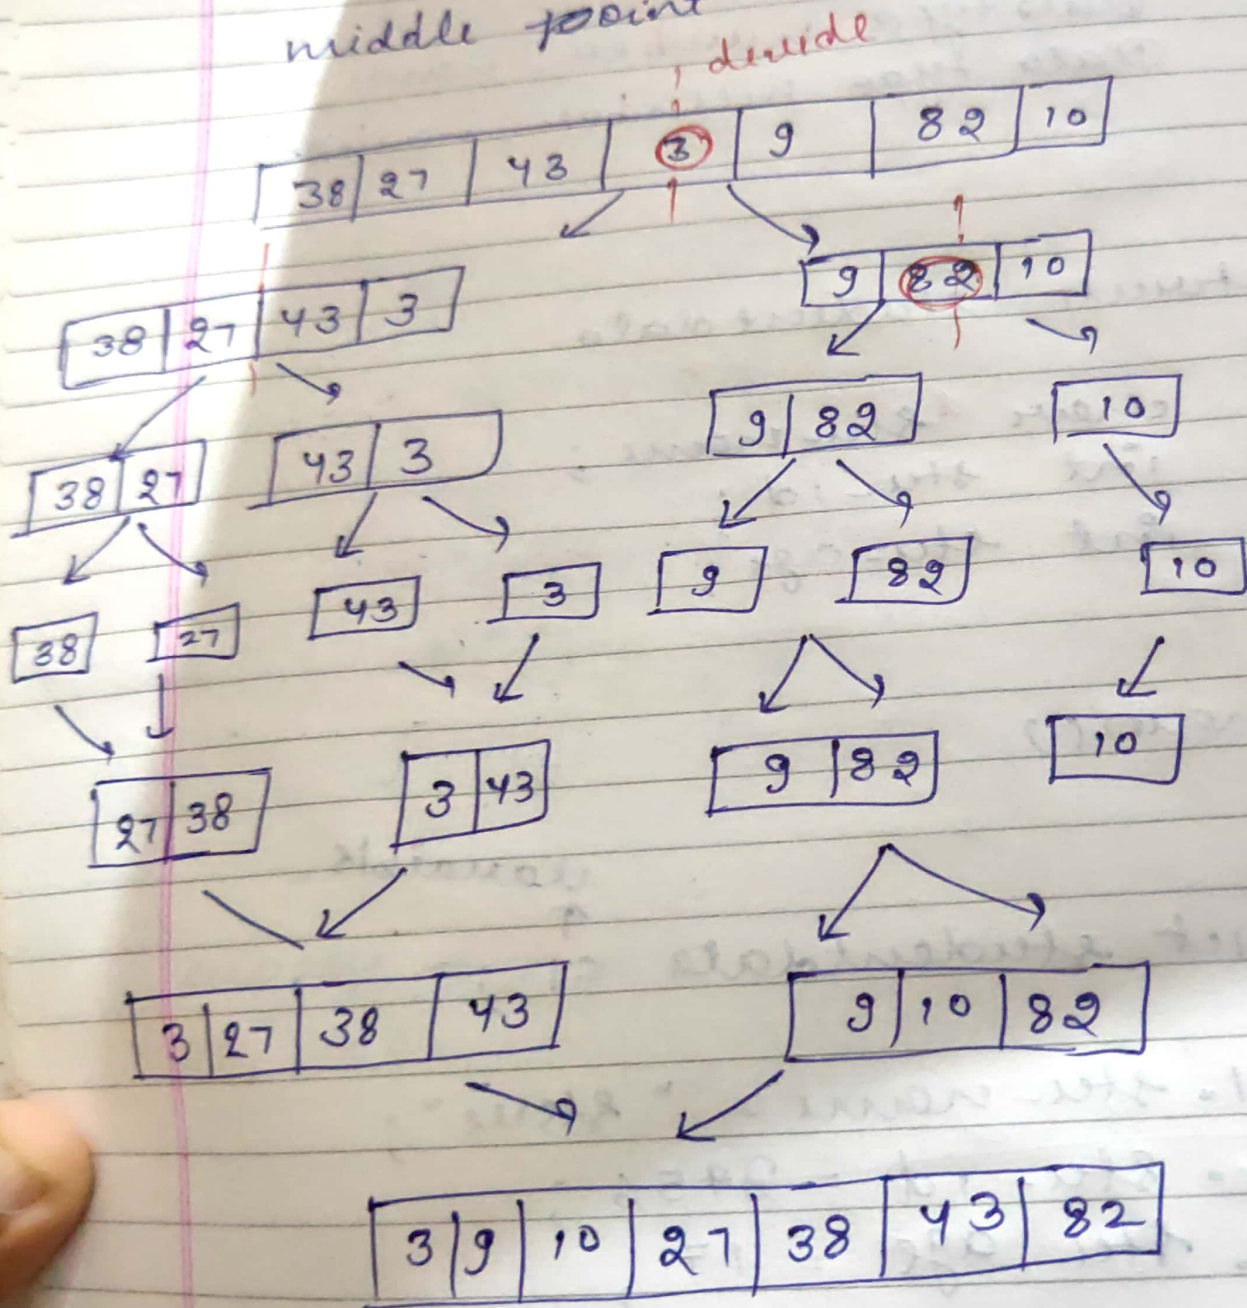 middle point
divide
38 27 43 3 9 82 10
38 27 43 3
9 82 10
38 27
43 3
9 82
10
38
27
43
3
9
82
10
27 38
3 43
9 82
10
3 27 38 43
9 10 82
3 9 10 27 38 43 82